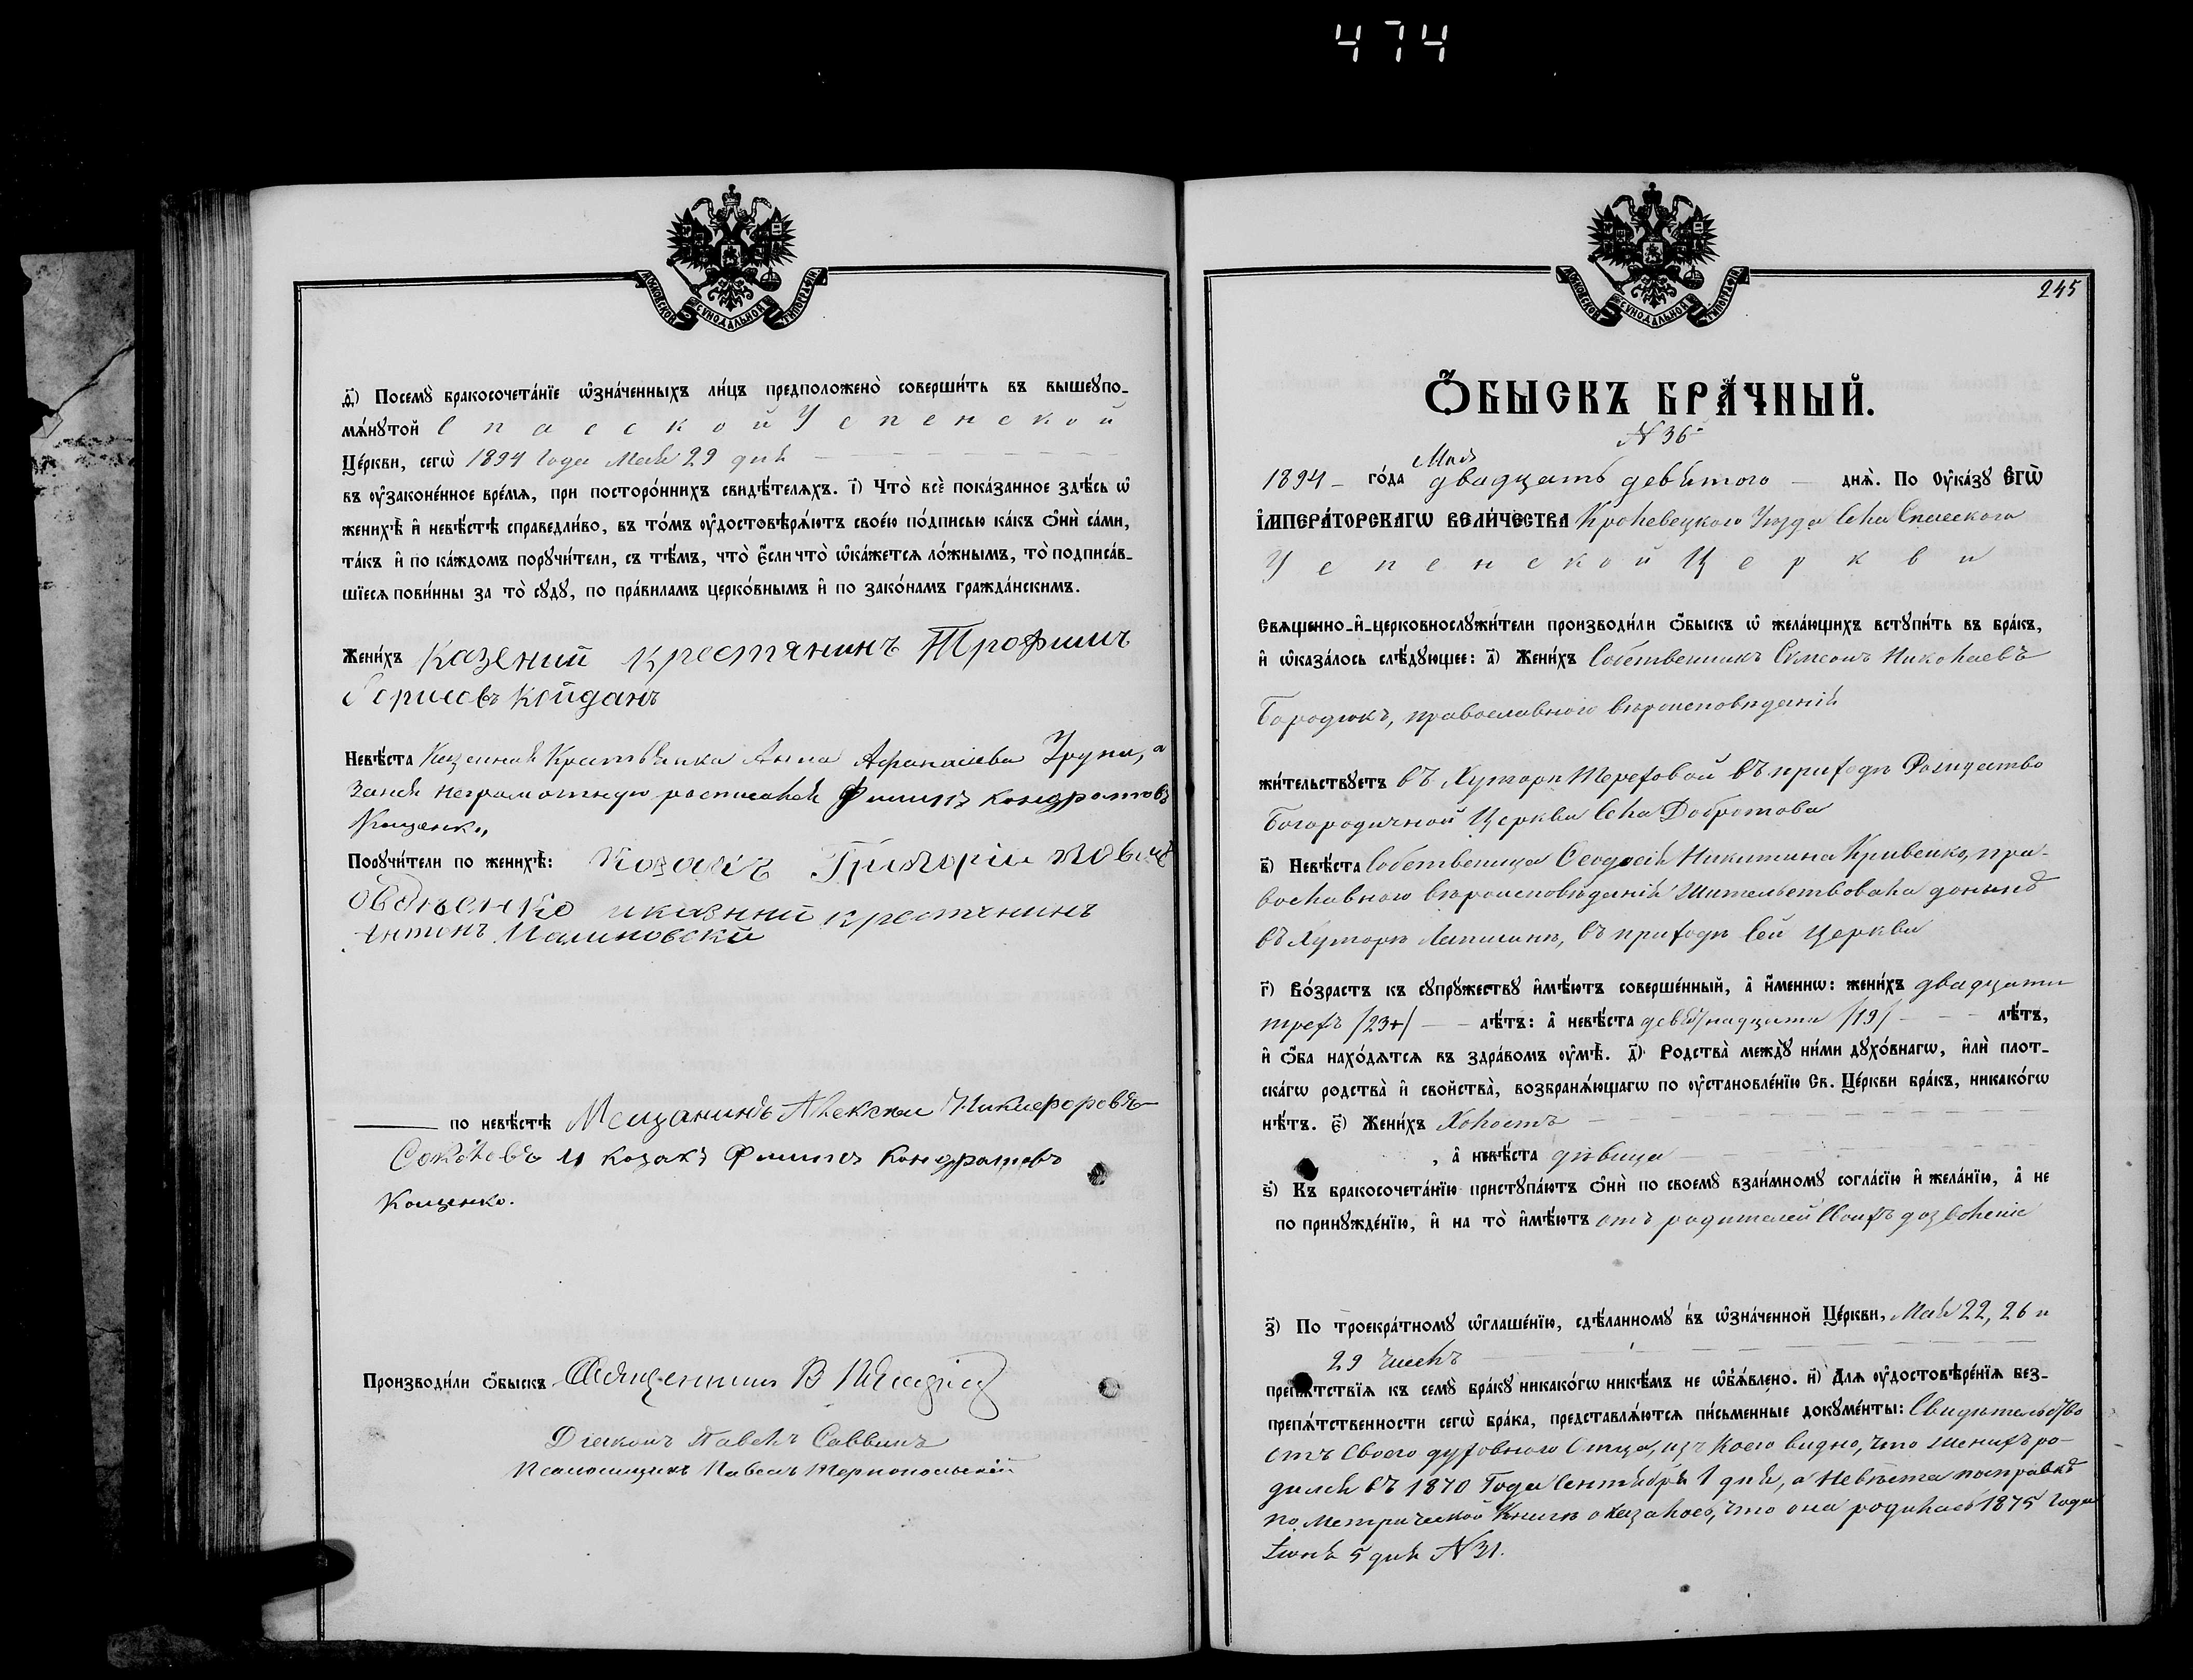 474
МОСКОВСКОЙ СѴНОДАЛЬНОЙ ТИПОГРАФІИ
д҃) Посемꙋ̀ бракосочета́нїе ѡ҆зна́ченныхъ ли́цъ предположено̀ соверши́ть въ вышеꙋпо-
мѧ́нꙋтой Спасской Успенской
Це́ркви, сегѡ̀ 1894 Года Мая 29 дня
въ ᲂу҆законе́нное вре́мѧ, при посторо́ннихъ свидѣ́телѧхъ. і҃) Что̀ всѐ пока́занное здѣ́сь ѡ҆
женихѣ̀ и҆ невѣ́стѣ справедли́во, въ то́мъ ᲂу҆достовѣрѧ́ютъ свое́ю по́дписью ка́къ ѻ҆нѝ са́ми,
та́къ и҆ по ка́ждомъ порꙋчи́тели, съ тѣ́мъ, что̀ є҆́сли что̀ ѡ҆ка́жетсѧ ло́жнымъ, то̀ подписа́в-
шїесѧ пови́нны за то̀ сꙋдꙋ̀, по пра́виламъ церко́внымъ и҆ по зако́намъ гражда́нскимъ.
Жени́хъ Казений крестянинъ Трофимъ
Борисовъ Койданъ
Невѣ́ста Казенная Крестьянка Анна Афанасіева Група, а
занея неграмотную росписался Филипъ Кондратовъ
Кощенко
Порꙋчи́тели по женихѣ̀: Козакъ Григорій
Овдѣенко и казний крестянинъ
Антонъ Малиновски
по невѣ́стѣ Мещанинъ Алексѣй Никифоровъ
Соколовъ и козакъ Филипъ Кондратовъ
Кощенко.
Производи́ли ѻ҆́быскъ Священникъ В
Діаконъ Павелъ Саввинъ
Псаломщикъ Павелъ Тернопольскій
МОСКОВСКОЙ СѴНОДАЛЬНОЙ ТИПОГРАФІИ
245
Ѻ҆́БЫСКЪ БРА́ЧНЫЙ.
N 36
Мая
1894 го́да двадцать девятого днѧ̀. По ᲂу҆ка́зꙋ Є҆ГѠ̀
І҆МПЕРА́ТОРСКАГѠ ВЕЛИ́ЧЕСТВА Кролевецкого Уѣзда Села Спасского
Успенской Церкви
Свѧщенно-и҆-церковнослꙋжи́тели производи́ли ѻ҆́быскъ ѡ҆ жела́ющихъ встꙋпи́ть въ бра́къ,
и҆ ѡ҆каза́лось слѣ́дꙋющее: а҃) Жени́хъ Собственникъ Симеонъ Николаевъ
Бородюкъ, православного вѣроисповѣданія
жи́тельствꙋетъ въ Хуторѣ Тереховой въ приходѣ Рождество
Богородичной Церкви Села Добротова
в҃) Невѣ́ста Собственица Ѳеодосія Никитина Кривенко, пра-
вославного вѣроисповѣданія жительствовала донынѣ
въ Хуторѣ Лапшинѣ, въ приходѣ сей Церкви
г҃) Во́зрастъ къ сꙋпрꙋ́жествꙋ и҆мѣ́ютъ соверше́нный, а҆ и҆́меннѡ: жени́хъ двадцати
трехъ /23+/ лѣ́тъ: а҆ невѣ́ста девятнадцати /19/ лѣ́тъ,
и҆ ѻ҆́ба нахо́дѧтсѧ въ здра́вомъ ᲂу҆мѣ̀. д҃) Родства̀ междꙋ̀ ни́ми дꙋхо́внагѡ, и҆лѝ плот-
ска́гѡ родства̀ и҆ свойства̀, возбранѧ́ющагѡ по ᲂу҆становле́нїю Св. Це́ркви бра́къ, никако́гѡ
нѣ́тъ. є҃) Жени́хъ Холостъ
, а҆ невѣ́ста дѣвица
ѕ҃) Къ бракосочета́нїю пристꙋпа́ютъ ѻ҆нѝ по своемꙋ̀ взаи́мномꙋ согла́сїю и҆ жела́нїю, а҆ не
по принꙋжде́нїю, и҆ на то̀ и҆мѣ́ютъ отъ родителей своихъ дозволеніе
з҃) По троекра́тномꙋ ѡ҆глаше́нїю, сдѣ́ланномꙋ въ ѡ҆зна́ченной Це́ркви, Мая 22, 26 и
29 числъ
препѧ́тствїѧ къ семꙋ̀ бра́кꙋ никако́гѡ никѣ́мъ не ѡ҆б̾ѧ́влено. и҃) Длѧ ᲂу҆достовѣре́нїѧ без-
препѧ́тственности сегѡ̀ бра́ка, представлѧ́ютсѧ пи́сьменные докꙋме́нты: Свидѣтельство
отъ Своего духовного Отца, изъ коего видно, что женихъ ро-
дился въ 1870 Года Сентября 1 дня, а Невѣста по справкѣ
по Метрической Книгѣ оказалось, что она родилась 1875 Года
Іюня 5 дня N 31.